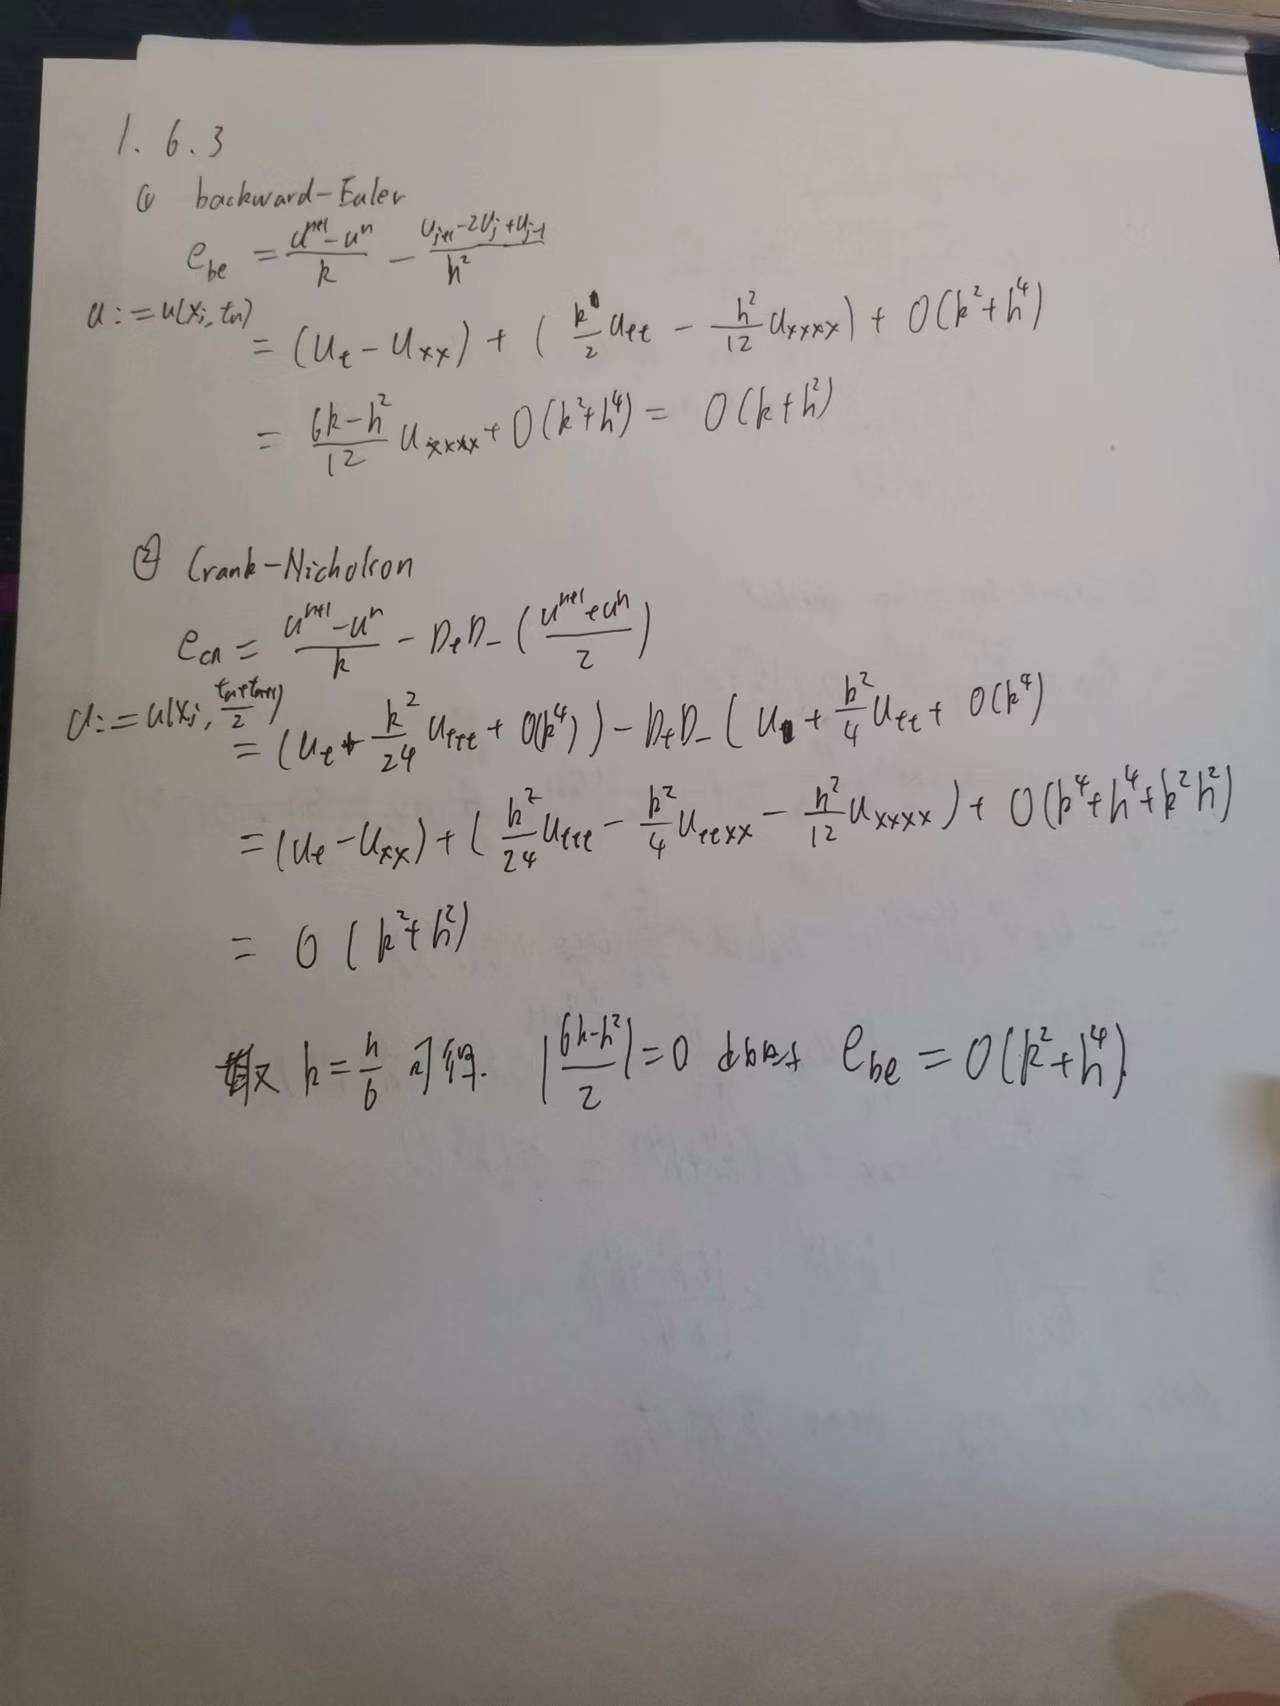 1.6.3
① backward-Euler
e_be = (u^{n+1} - u^n)/k - (u_{j+1} - 2u_j + u_{j-1})/h^2
u := u(x_j, t_n)
= (u_t - u_xx) + (k/2 u_tt - h^2/12 u_xxxx) + O(k^2+h^4)
= (6k-h^2)/12 u_xxxx + O(k^2+h^4) = O(k+h^2)
② Crank-Nicholson
e_cn = (u^{n+1} - u^n)/k - D_+D_- ((u^{n+1}+u^n)/2)
u := u(x_j, (t_n+t_{n+1})/2)
= (u_t + k^2/24 u_ttt + O(k^4)) - D_+D_- (u + k^2/4 u_tt + O(k^4)
= (u_t - u_xx) + (k^2/24 u_ttt - k^2/4 u_ttxx - h^2/12 u_xxxx) + O(k^4+h^4+k^2h^2)
= O(k^2+h^2)
取 k = h/6 可得. |(6k-h^2)/2| = 0 e_be = O(k^2+h^4).